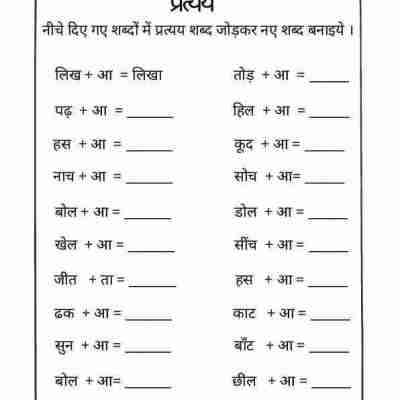 प्रत्यय
नीचे दिए गए शब्दों में प्रत्यय शब्द जोड़कर नए शब्द बनाइये ।
लिख + आ = लिखा तोड़ + आ = ______
पढ़ + आ = ______ हिल + आ = ______
हस + आ = ______ कूद + आ = ______
नाच + आ = ______ सोच + आ= ______
बोल + आ = ______ डोल + आ = ______
खेल + आ = ______ सींच + आ = ______
जीत + ता = ______ हस + आ = ______
ढक + आ = ______ काट + आ = ______
सुन + आ = ______ बाँट + आ = ______
बोल + आ= ______ छील + आ = ______